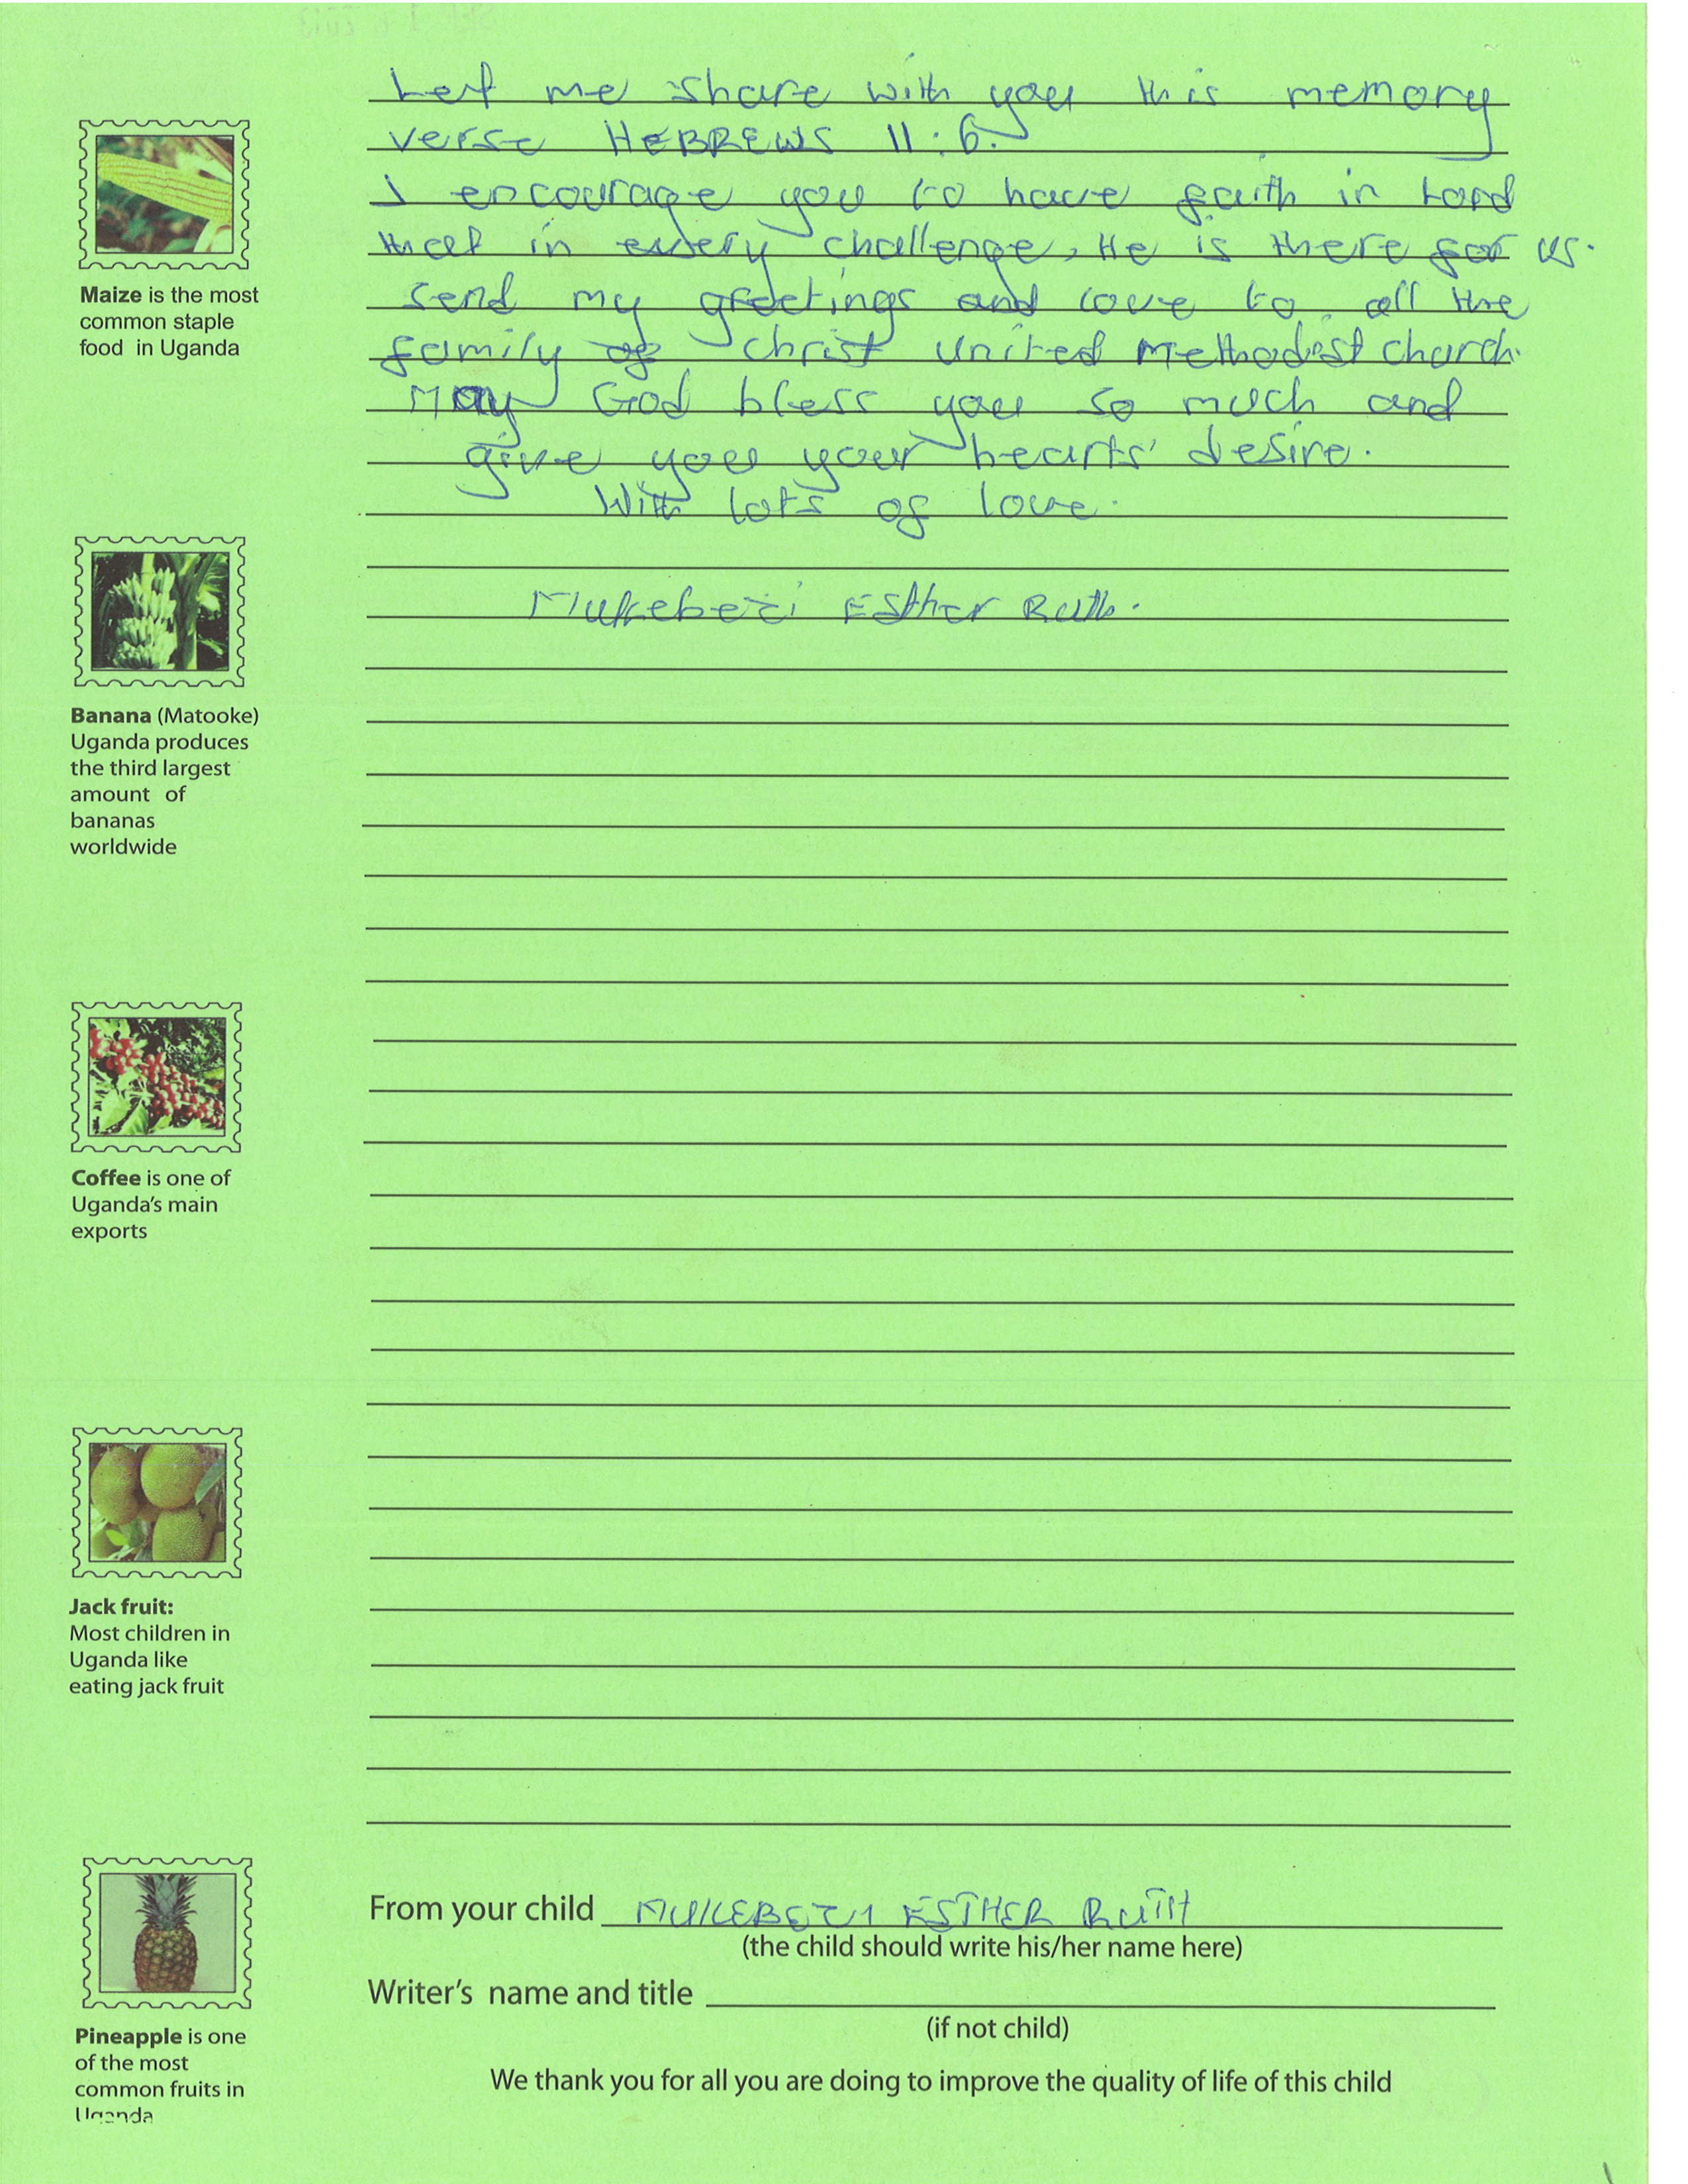 Let me share with you this memory
verse HEBREWS 11:6.
I encourage you to have faith in Lord
that in every challenge, He is there for us.
Send my greetings and love to all the
family of Christ United Methodist church.
May God bless you so much and
give you your hearts' desire.
With lots of love.
Mukebezi Esther Ruth.
Maize is the most
common staple
food in Uganda
Banana (Matooke)
Uganda produces
the third largest
amount of
bananas
worldwide
Coffee is one of
Uganda's main
exports
Jack fruit:
Most children in
Uganda like
eating jack fruit
Pineapple is one
of the most
common fruits in
Uganda
From your child MUKEBEZI ESTHER RUTH
(the child should write his/her name here)
Writer's name and title
(if not child)
We thank you for all you are doing to improve the quality of life of this child